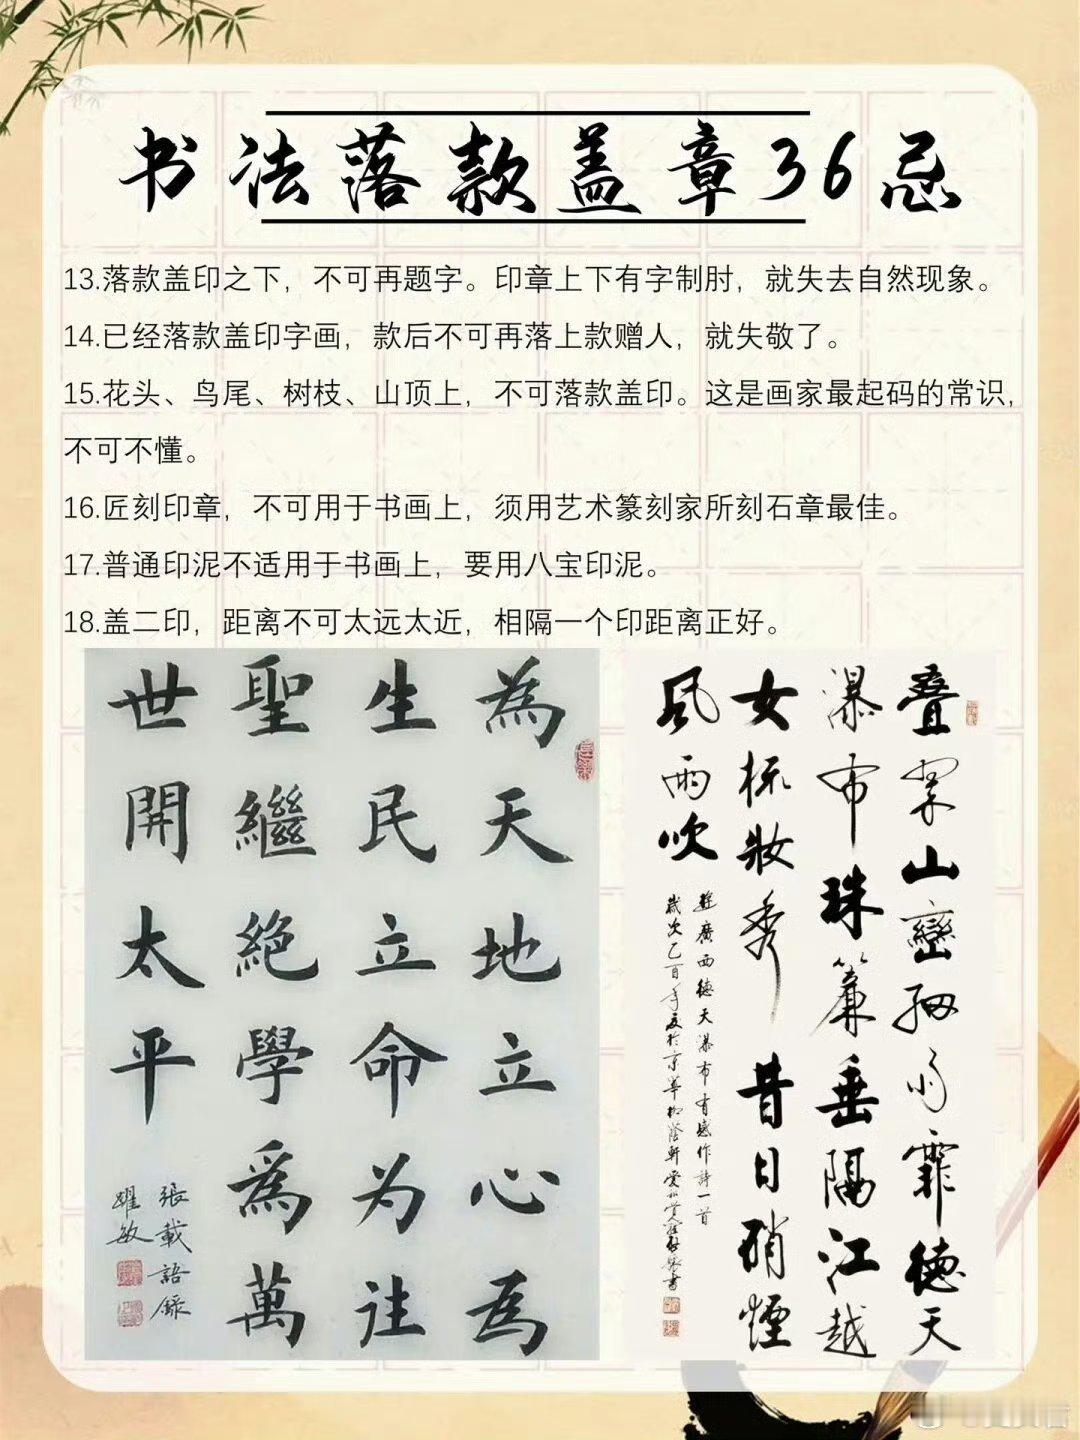 书法落款盖章36忌
13.落款盖印之下，不可再题字。印章上下有字制肘，就失去自然现象。
14.已经落款盖印字画，款后不可再落上款赠人，就失敬了。
15.花头、鸟尾、树枝、山顶上，不可落款盖印。这是画家最起码的常识，
不可不懂。
16.匠刻印章，不可用于书画上，须用艺术篆刻家所刻石章最佳。
17.普通印泥不适用于书画上，要用八宝印泥。
18.盖二印，距离不可太远太近，相隔一个印距离正好。
為天地立心為
生民立命为往
聖繼絕學爲萬
世開太平
張載語錄
躍敏
叠翠山巒細雨霏德天
瀑布珠簾垂隔江越
女梳妝秀昔日硝煙
風雨吹
遊廣西德天瀑布有感作詩一首
歲次乙酉年夏於京華柳蔭軒